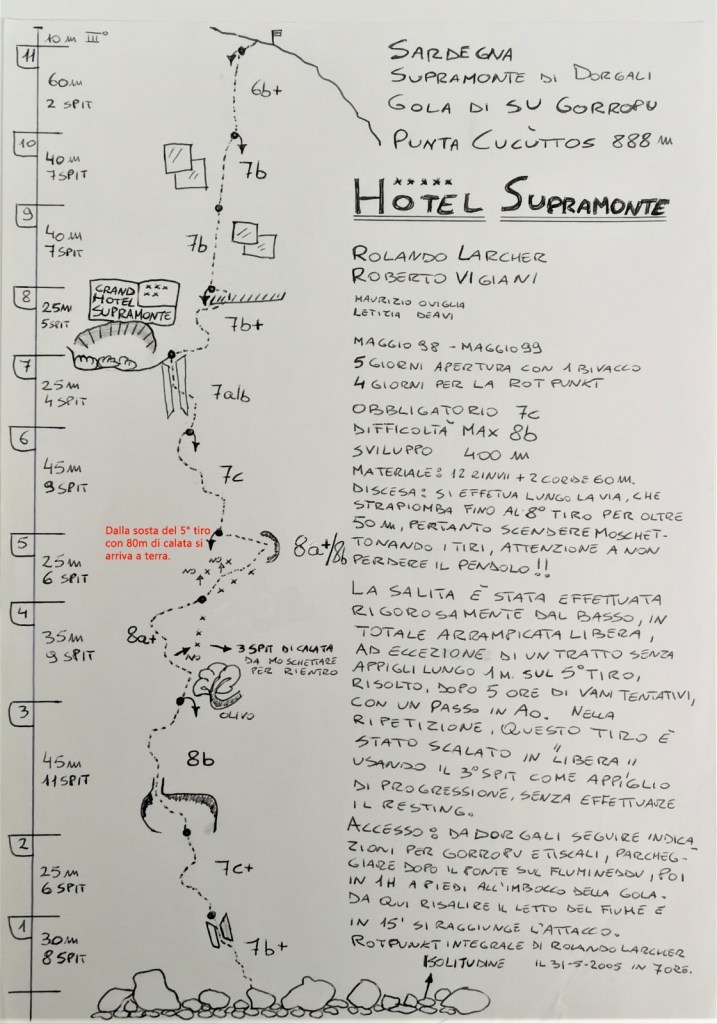 10 m III°
11
60m
2 SPIT
6b+
10
40m
7SPIT
7b
9
40m
7SPIT
7b
8
25m
5SPIT
GRAND
HOTEL
SUPRAMONTE
7b+
7
25m
4 SPIT
7a/b
6
45m
9 SPIT
7c
Dalla sosta del 5° tiro
con 80m di calata si
arriva a terra.
5
25m
6 SPIT
NO
NO
8a+/8b
4
35m
9 SPIT
8a+
NO
3 SPIT DI CALATA
DA MOSCHETTARE
PER RIENTRO
OLIVO
3
45m
11 SPIT
8b
2
25m
6 SPIT
7c+
1
30m
8 SPIT
7b+
SARDEGNA
SUPRAMONTE DI DORGALI
GOLA DI SU GORROPU
PUNTA CUCÙTTOS 888 m
HOTEL SUPRAMONTE
ROLANDO LARCHER
ROBERTO VIGIANI
MAURIZIO OVIGLIA
LETIZIA DEAVI
MAGGIO 98 - MAGGIO 99
5 GIORNI APERTURA CON 1 BIVACCO
4 GIORNI PER LA ROTPUNKT
OBBLIGATORIO 7c
DIFFICOLTÀ MAX 8b
SVILUPPO 400 m
MATERIALE: 12 RINVII + 2 CORDE 60 M.
DISCESA: SI EFFETUA LUNGO LA VIA, CHE
STRAPIOMBA FINO AL 8° TIRO PER OLTRE
50 m, PERTANTO SCENDERE MOSCHET-
TONANDO I TIRI, ATTENZIONE A NON
PERDERE IL PENDOLO!!
LA SALITA È STATA EFFETTUATA
RIGOROSAMENTE DAL BASSO, IN
TOTALE ARRAMPICATA LIBERA,
AD ECCEZIONE DI UN TRATTO SENZA
APPIGLI LUNGO 1 M. SUL 5° TIRO,
RISOLTO, DOPO 5 ORE DI VANI TENTATIVI,
CON UN PASSO IN A0. NELLA
RIPETIZIONE, QUESTO TIRO È
STATO SCALATO IN "LIBERA"
USANDO IL 3° SPIT COME APPIGLIO
DI PROGRESSIONE, SENZA EFFETTUARE
IL RESTING.
ACCESSO: DA DORGALI SEGUIRE INDICA
ZIONI PER GORROPU E TISCALI, PARCHEG-
GIARE DOPO IL PONTE SUL FLUMINEDDU, POI
IN 1H A PIEDI ALL'IMBOCCO DELLA GOLA.
DA QUI RISALIRE IL LETTO DEL FIUME E
IN 15' SI RAGGIUNGE L'ATTACCO.
ROTPUNKT INTEGRALE DI ROLANDO LARCHER
IL 31-5-2005 IN 7 ORE.
SOLITUDINE